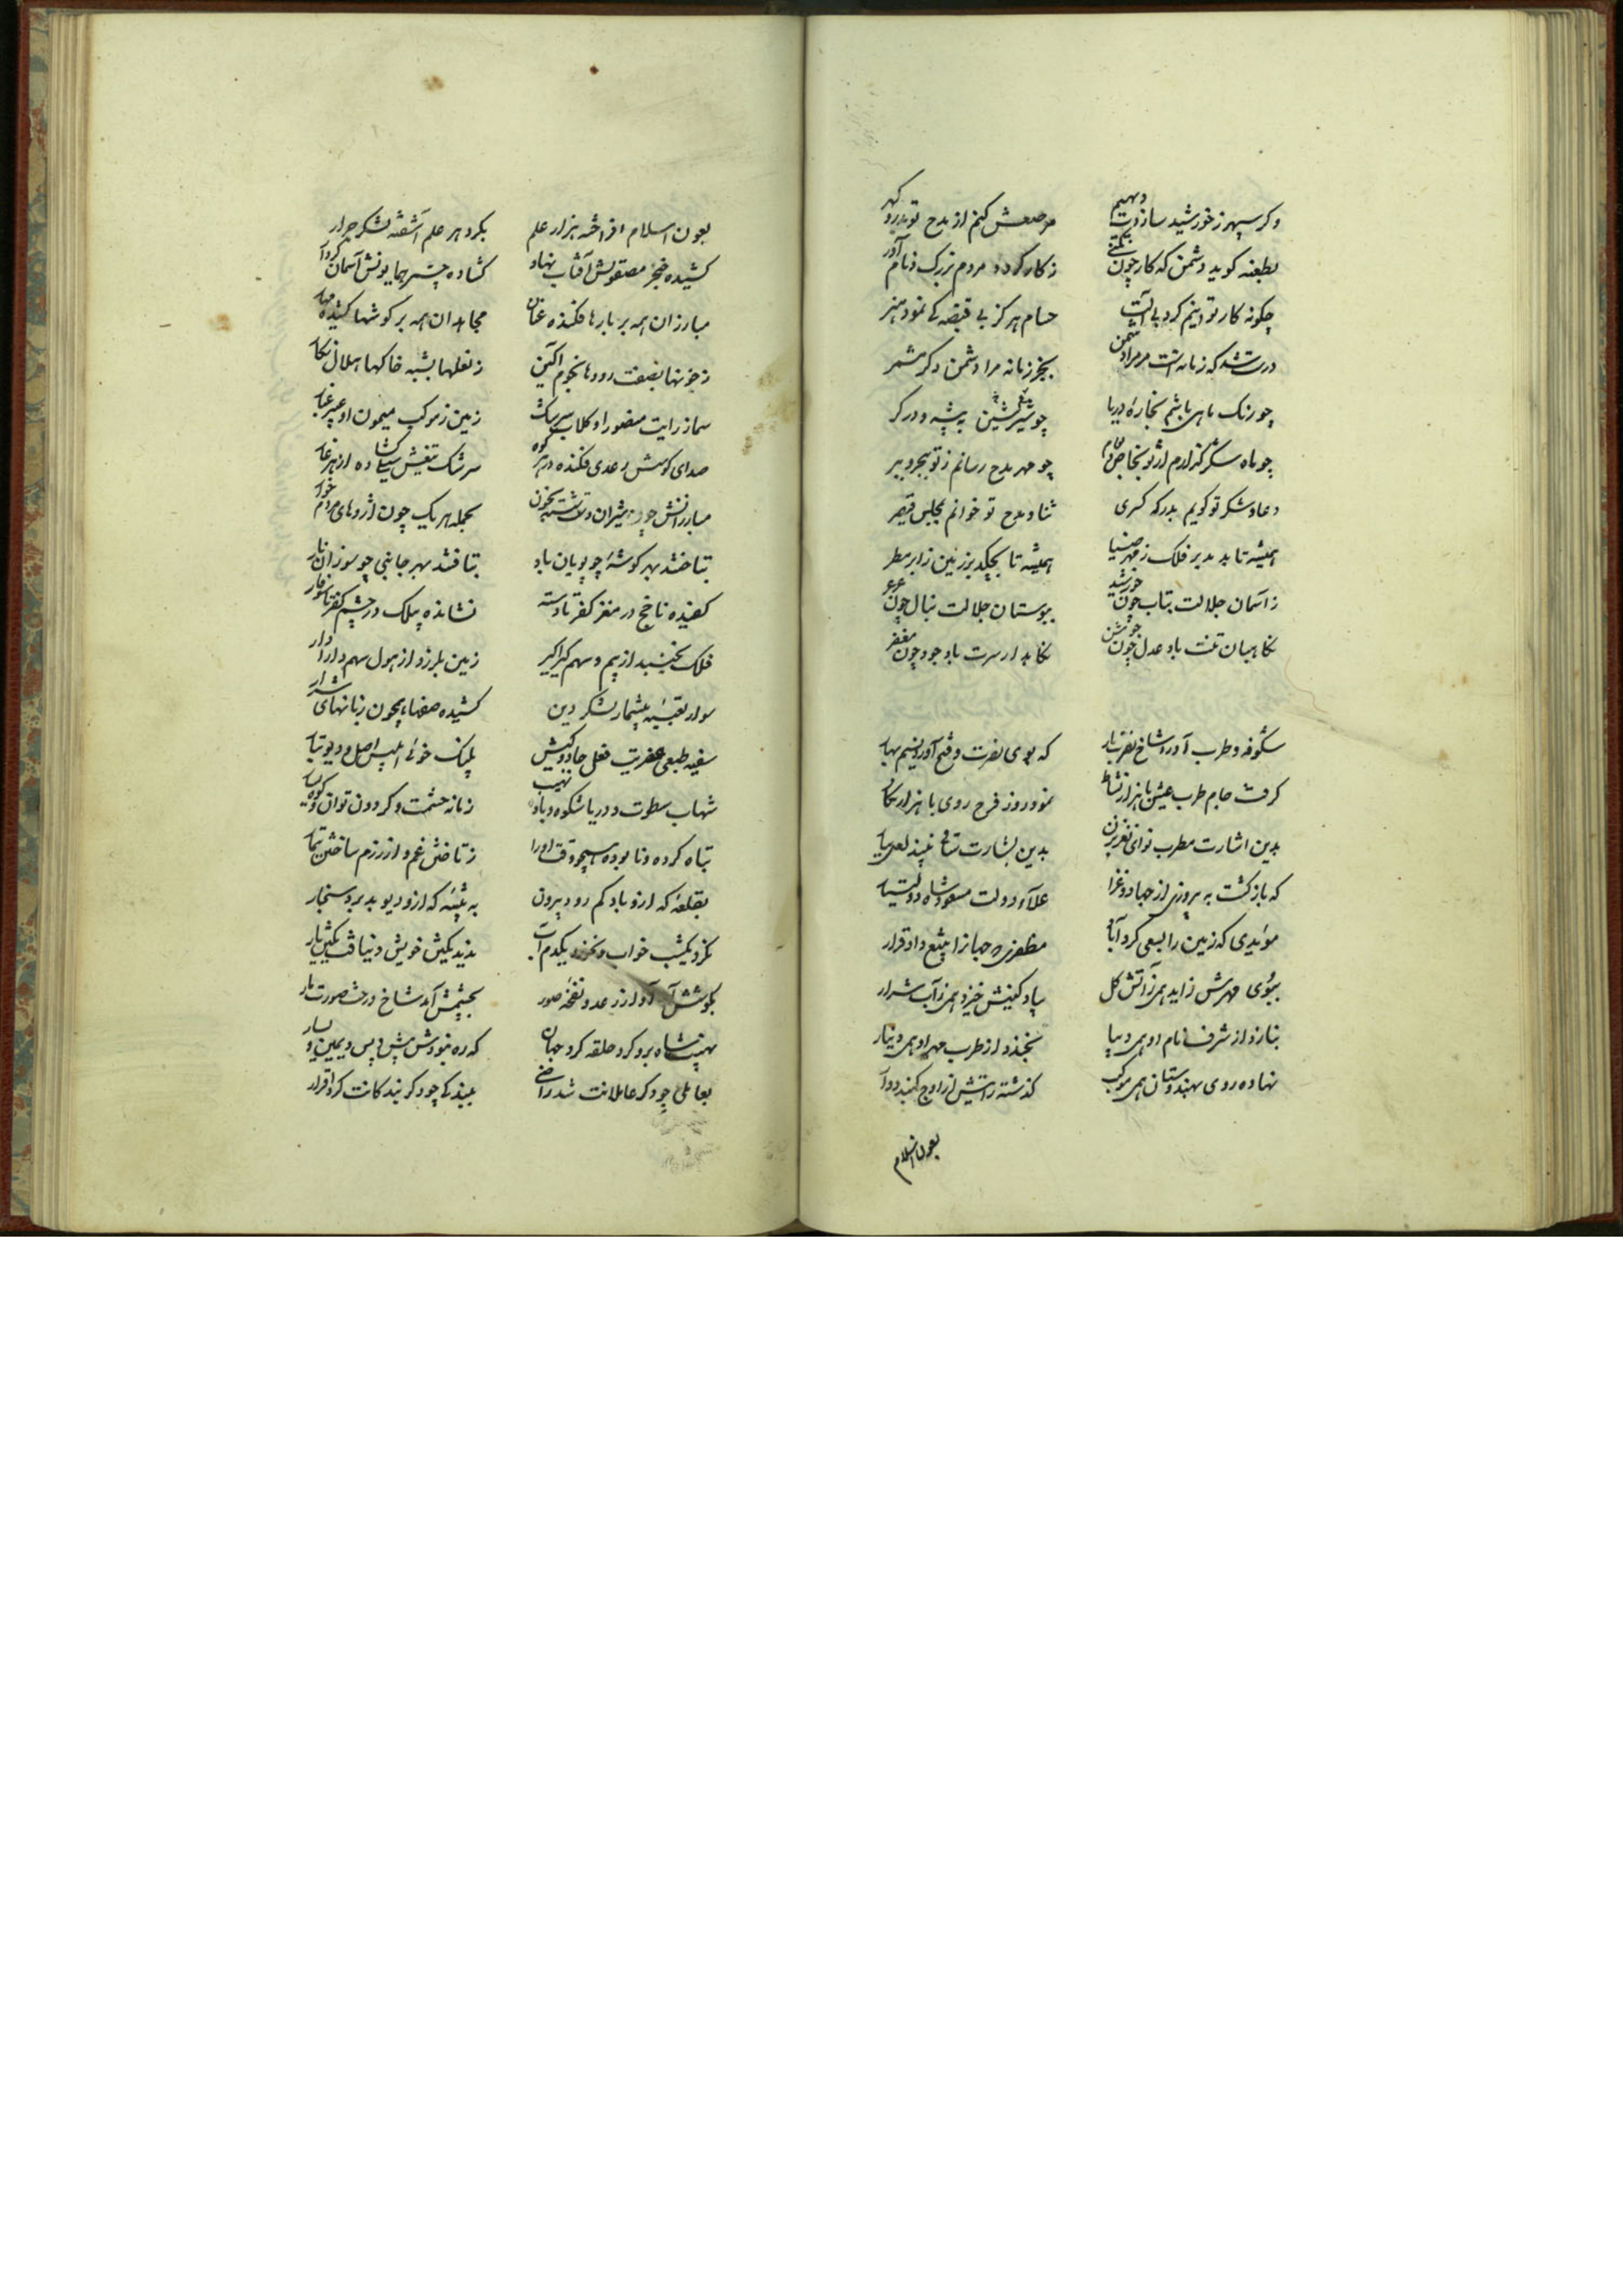 وکر سپهر ز خورشید سازدت دیهیم مرصعش کنم از مدح تو بدر و گهر
بطعنه کوید دشمن که کار چون نکنی ز کار کردد مردم بزرک و نام آور
چکونه کار توانم کرد بی آلت حسام هرکز بی قبضه کی نمود هنر
درست شد که زمانه است مر مرا دشمن بجز زمانه مرا دشمن دکر مشمر
چو رنک باهی باشم بخاره دریا چو شیر نشین به بیشه و در کر
چو ماه شکر کزارم از تو بخاص و عام چو مهر مدح رسانم ز تو ببحر و ببر
دعا و شکر تو کویم بدرکه کسری ثنا و مدح تو خوانم بمجلس قیصر
همیشه تا بدمد بر فلک ز مهر ضیا همیشه تا بچکد بر زمین ز ابر مطر
ز آسمان جلالت بتاب چون خورشید ببوستان جلالت ببال چون عرعر
نکاهبان تنت باد عدل چون جوشن نکاهدار سرت باد جود چون مغفر
شکوفه طرب آورد شاخ نصرت بار که بوی نصرت و فتح آورد نسیم بهار
کرفت جام طرب عیش با هزار نشاط نمود روز فرح روی با هزار نکار
بدین اشارت مطرب نوای نغز بزن بدین بشارت ساقی نبید لعل بیار
که بازکشت به پیروزی از جهاد و غزا علاء دولت مسعود شاه دولتیار
مؤیدی که زمین را بسعی کرد آباد مظفری که جهانرا بتیغ داد قرار
ببوی مهرش زاید همی ز آتش کل بباد کینش خیزد همی ز آب شرار
بنازد از شرف نام او همی دیبا بخندد از طرب مهر او همی دینار
نهاده روی بهندوستان همی موکب کذشته رایتش از اوج کنبد دوار
بعون اسلام
بعون اسلام افراخته هزار علم بکرد هر علم آشفته لشکر جرار
کشیده خنجر مصقولش آفتاب نهاد کشاده چتر همایونش آسمان کردار
مبارزان همه بر بارها فکنده عنان مجاهدان همه بر کوشها کشیده مهار
ز خونها بصفت رودها نجوم آکین ز نعلها بشبه خاکها هلال نکار
سما ز رایت منصور او کلاب سرشک زمین ز مرکب میمون او عبیر غبار
صدای کوسش رعدی فکنده در هر کوه سرشک تیغش سیلی کشاده از هر غار
مبارزانش چو شیران دست شسته بخون بحمله هر یک چون اژدهای مردم خوار
بتاختند بهر کوشه چو پویان باد بتافتند بهر جانبی چو سوزان نار
کفیده ناچخ در مغز کفر تا دسته نشانده پیلک در چشم کفر تا سوفار
فلک بجنبد از بیم و سهم کیراکیر زمین بلرزد از هول و سهم دارادار
سوار تعبیه بیشمار لشکر دین کشیده صفها همچون زبانهای شرار
سفیه طبعی عفریت فعل جادو کیش پلنک خوئی ابلیس اصل و دیو تبار
شهاب سطوت و دریا شکوه و باد نهیب زمانه حشمت و کردون توان و کوه یسار
تباه کرده و نابوده هیچوقت او را ز تاختن غم و از رزم ساختن تیمار
بقلعه که ازو باد کم رود بیرون به بیشه که ازو دیو بد برد سنجار
نکرد یکشب خواب و نخورد یکدم آب ندید یکتن خویش و نیافت یکتن یار
بکوشش آمد آواز رعد و نفخه صور بچشمش آمد شاخ درخت صورت مار
نهیب شاه برو کرد حلقه کرد جهان که ره نبودش پیش و پس و یمین و یسار
بعاملی چو دکر عاملانت شد راضی ببندکی چو دکر بندکانت کرد اقرار